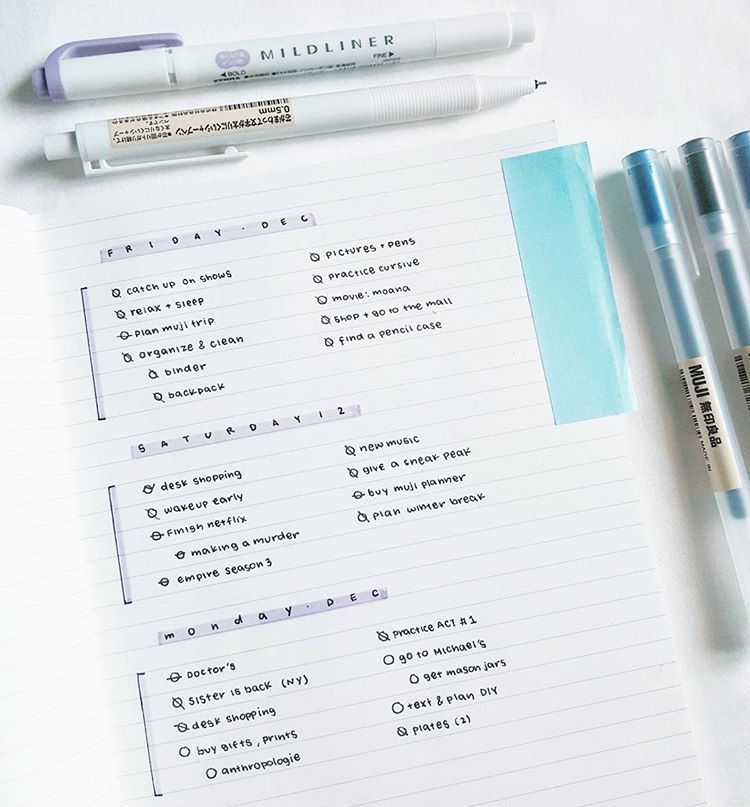 MILDLINER
BOLD
FINE
0.5mm
FRIDAY · DEC
catch up on shows
relax + sleep
plan muji trip
organize & clean
binder
backpack
pictures + pens
practice cursive
movie: moana
shop + go to the mall
find a pencil case
SATURDAY 12
desk shopping
wakeup early
Finish netflix
making a murder
empire season 3
new music
give a sneak peak
buy muji planner
plan winter break
monday · DEC
DOCTOR'S
SISTER IS back (NY)
desk shopping
buy gifts, prints
anthropologie
Practice ACT #1
go to Michael's
get mason jars
text & plan DIY
plates (2)
MUJI 無印良品